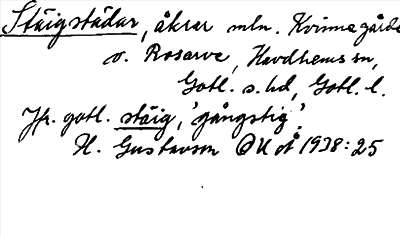 Stäigstädar, åkrar mln. Kvinnegårde
o. Rosarve, Havdhems sn,
Gotl. s. hd, Gotl. l.
Jfr. gotl. stäig, 'gångstig'.
H. Gustavson OUÅ 1938:25